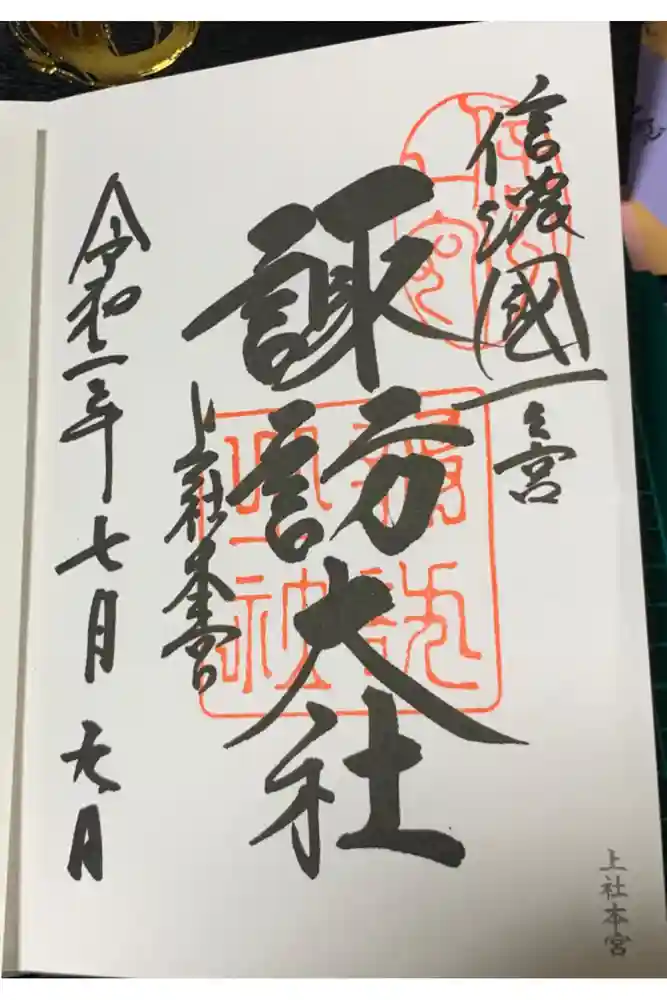 信濃國一之宮
諏訪大社
上社本宮
令和二年七月 日
上社本宮